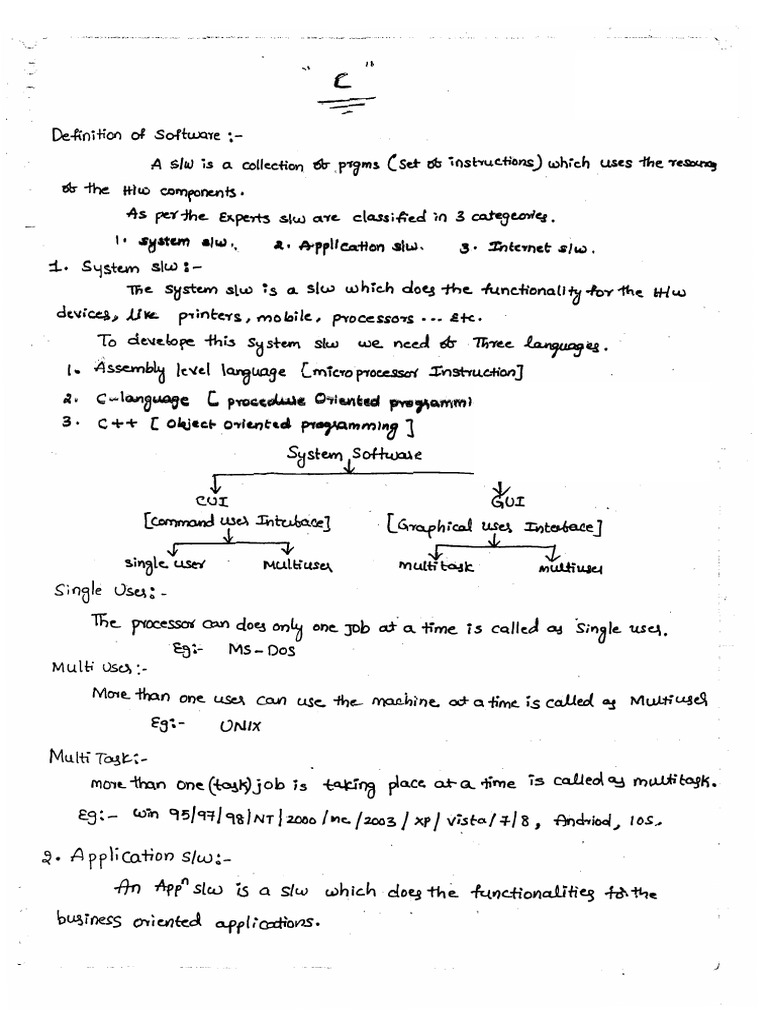 " C "
Definition of Software :-
A s/w is a collection of prgms (set of instructions) which uses the resources
of the H/w components.
As per the Experts s/w are classified in 3 categeories.
1. System s/w. 2. Application s/w. 3. Internet s/w.
1. System s/w:-
The System s/w is a s/w which does the functionality for the H/w
devices, like printers, mobile, processors ... Etc.
To develope this System s/w we need of Three languages.
1. Assembly level language [microprocessor Instruction]
2. C-language [ procedure Oriented programmi
3. C++ [ Object oriented programming ]
System Software
CUI GUI
[Command user Interface] [Graphical User Interface]
single user Multiuser multitask multiuser
Single User:-
The processor can does only one Job at a time is called as Single user.
Eg:- MS-DOS
Multi User:-
More than one user can use the machine at a time is called as Multiuser
Eg:- UNIX
Multi Task:-
more than one (task) job is taking place at a time is called as multitask.
Eg:- Win 95/97/98/NT/2000/me/2003/xp/vista/7/8, Andriod, IOS.
2. Application s/w:-
An Appn s/w is a s/w which does the functionalities to the
business oriented applications.